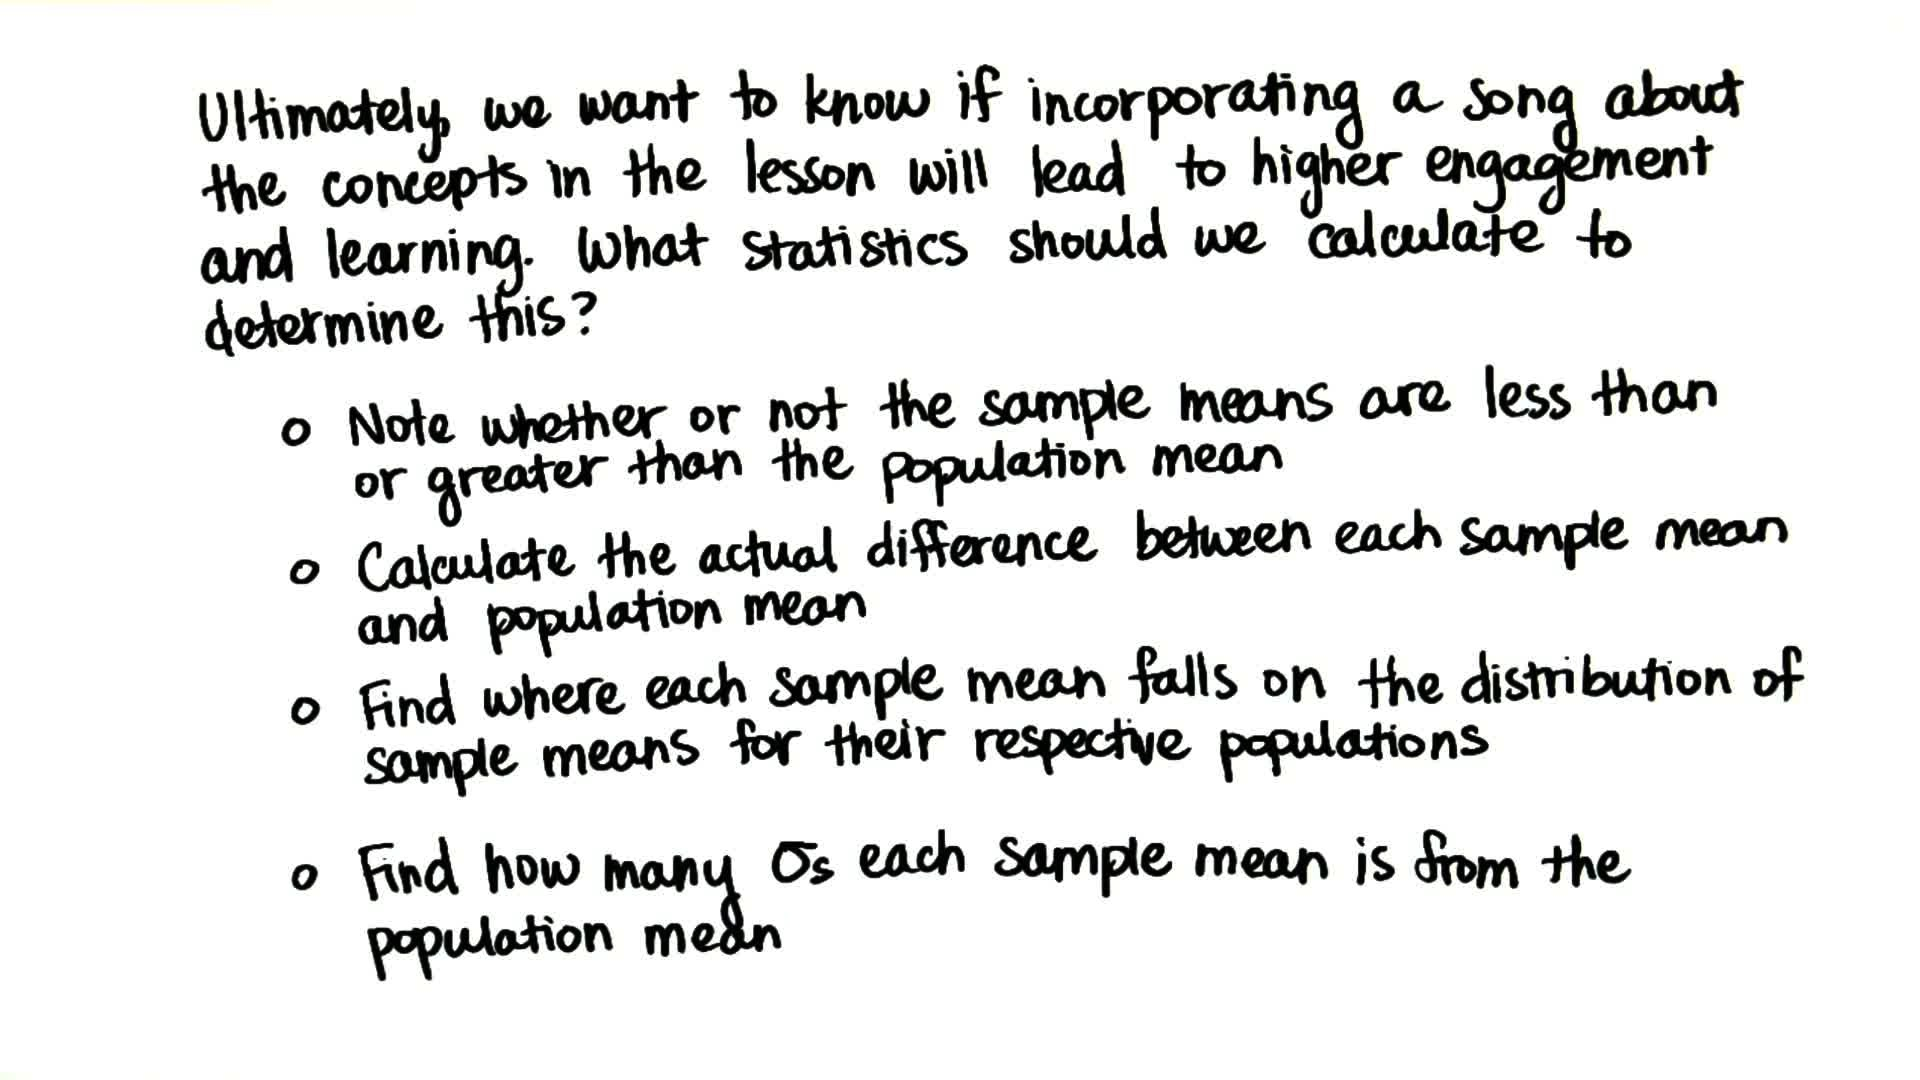 Ultimately, we want to know if incorporating a song about
the concepts in the lesson will lead to higher engagement
and learning. What statistics should we calculate to
determine this?
o Note whether or not the sample means are less than
or greater than the population mean
o Calculate the actual difference between each sample mean
and population mean
o Find where each sample mean falls on the distribution of
sample means for their respective populations
o Find how many σs each sample mean is from the
population mean